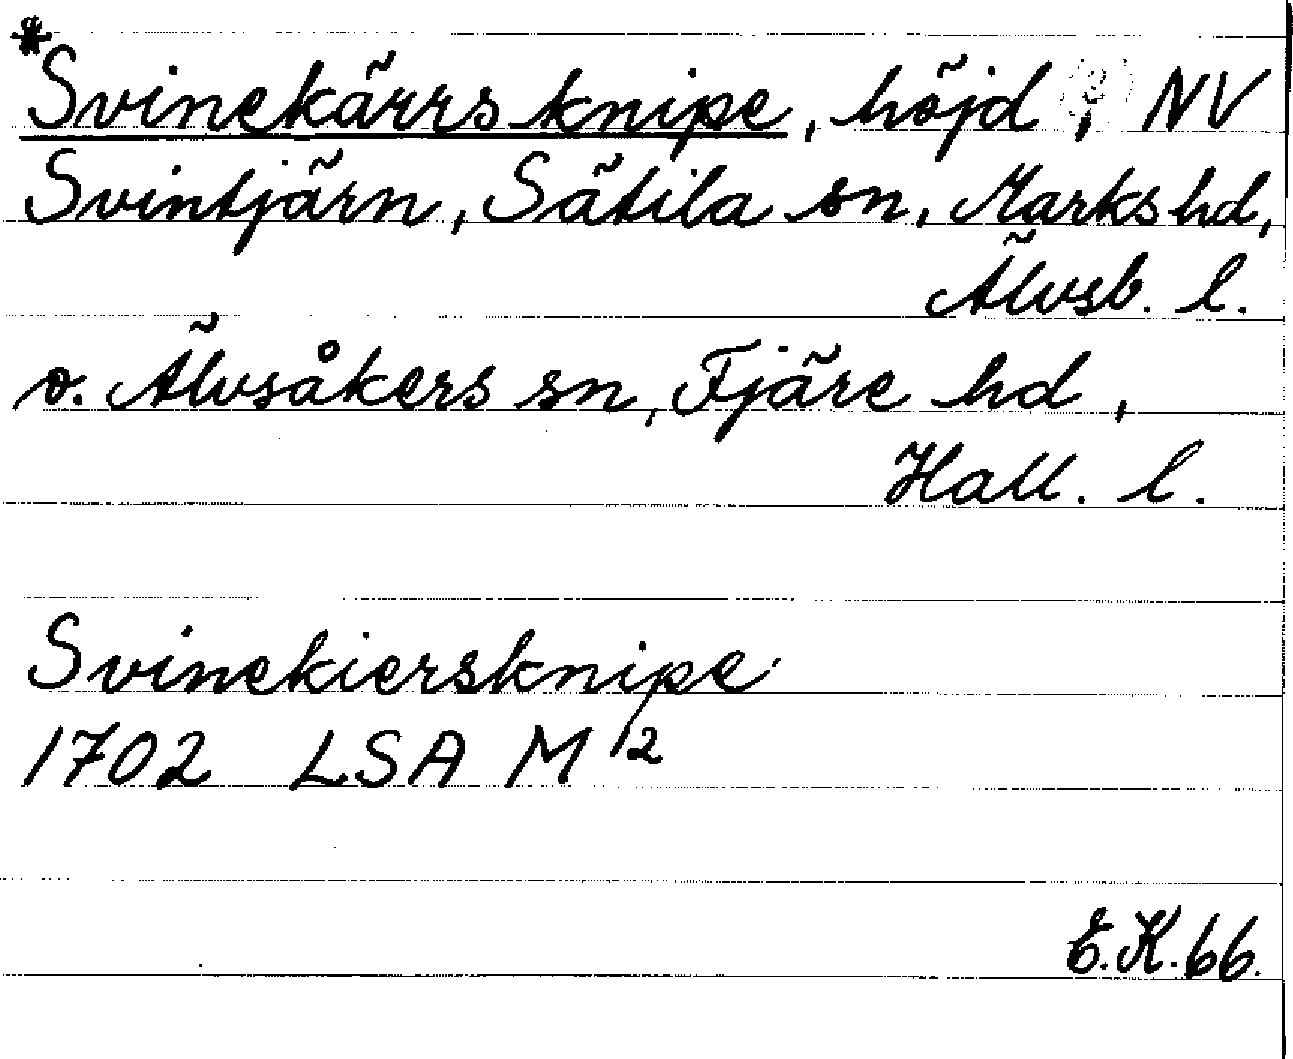 *Svinekärrsknipe, höjd, i NV
Svintjärn, Sätila sn, Marks hd,
Älvsb. l.
o. Älvsåkers sn, Fjäre hd,
Hall. l.
Svinekiersknipe
1702 LSA M 12
E.K.66.